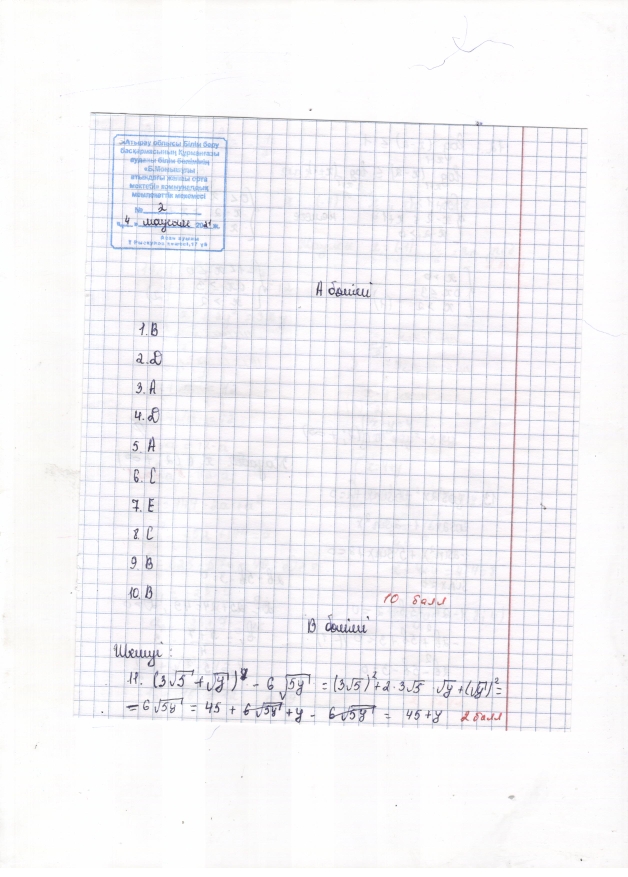 «Атырау облысы Білім беру
басқармасының Құрманғазы
ауданы білім бөлімінің
атындағы жалпы орта
мектебі» коммуналдық
мемлекеттік мекемесі
№ 2
4 маусым 2021 ж.
А бөлімі
1. В
2. D
3. А
4. D
5. А
6. С
7. Е
8. С
9. В
10. В
10 балл
В бөлімі
Шешуі:
11. (3√5 + √y)² - 6√5y = (3√5)² + 2·3√5 · √y + (√y)² =
= 6√5y = 45 + 6√5y + y - 6√5y = 45 + y 2 балл